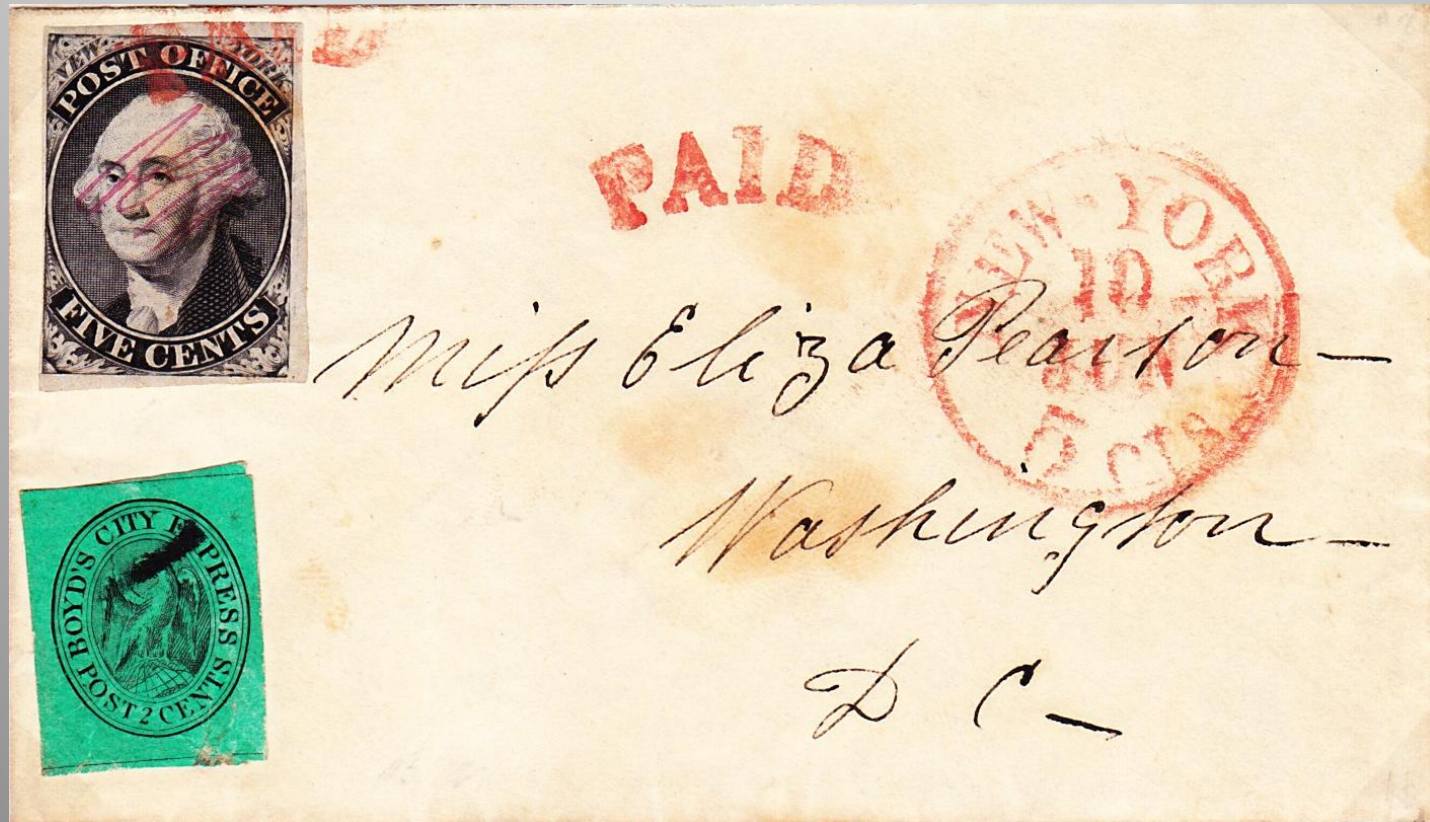 NEW YORK
POST OFFICE
FIVE CENTS
PAID
PAID
NEW-YORK
10
JUN
5 CTS
Miſs Eliza Pearson —
Washington —
D C —
BOYD'S CITY EXPRESS
POST 2 CENTS